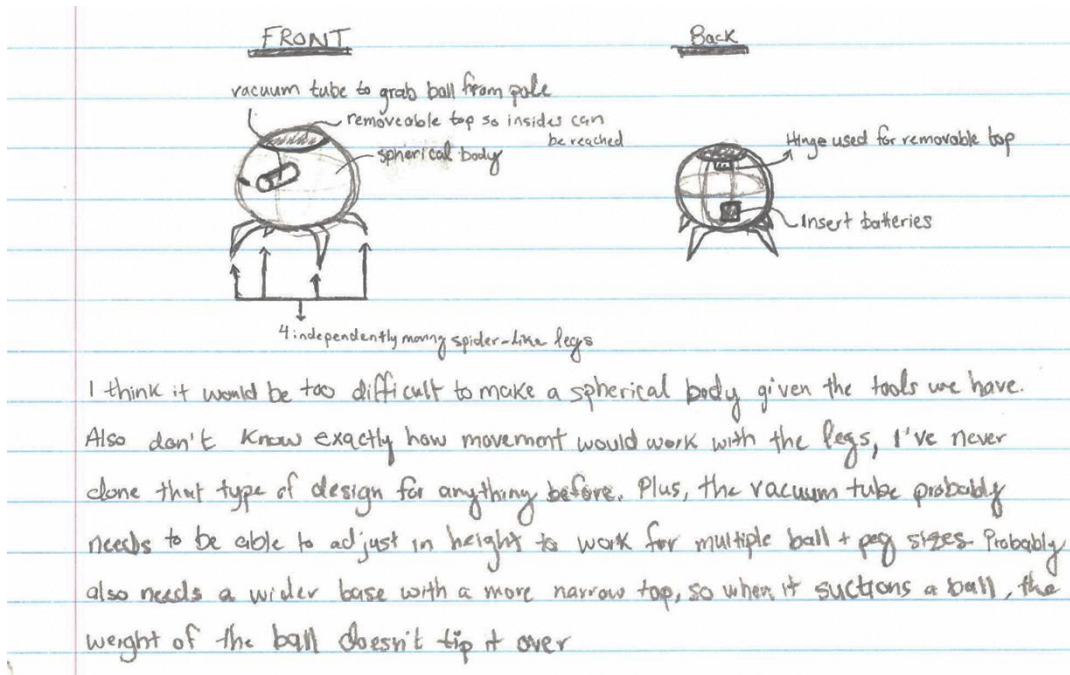 FRONT
Back
vacuum tube to grab ball from pole
removeable top so insides can
be reached
spherical body
Hinge used for removable top
Insert batteries
4 independently moving spider-like legs
I think it would be too difficult to make a spherical body given the tools we have.
Also don't know exactly how movement would work with the legs, I've never
done that type of design for anything before. Plus, the vacuum tube probably
needs to be able to adjust in height to work for multiple ball + peg sizes. Probably
also needs a wider base with a more narrow top, so when it suctions a ball, the
weight of the ball doesn't tip it over